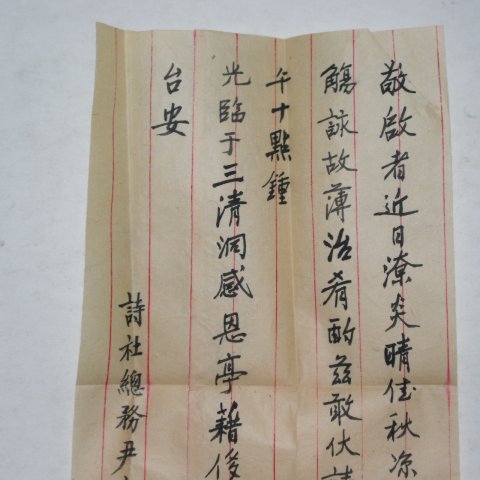 敬啟者近日潦炎晴佳秋凉
觴詠故薄治肴酌茲敢伏請
午十點鍾
光臨于三清洞感恩亭藉俟
台安
詩社總務尹